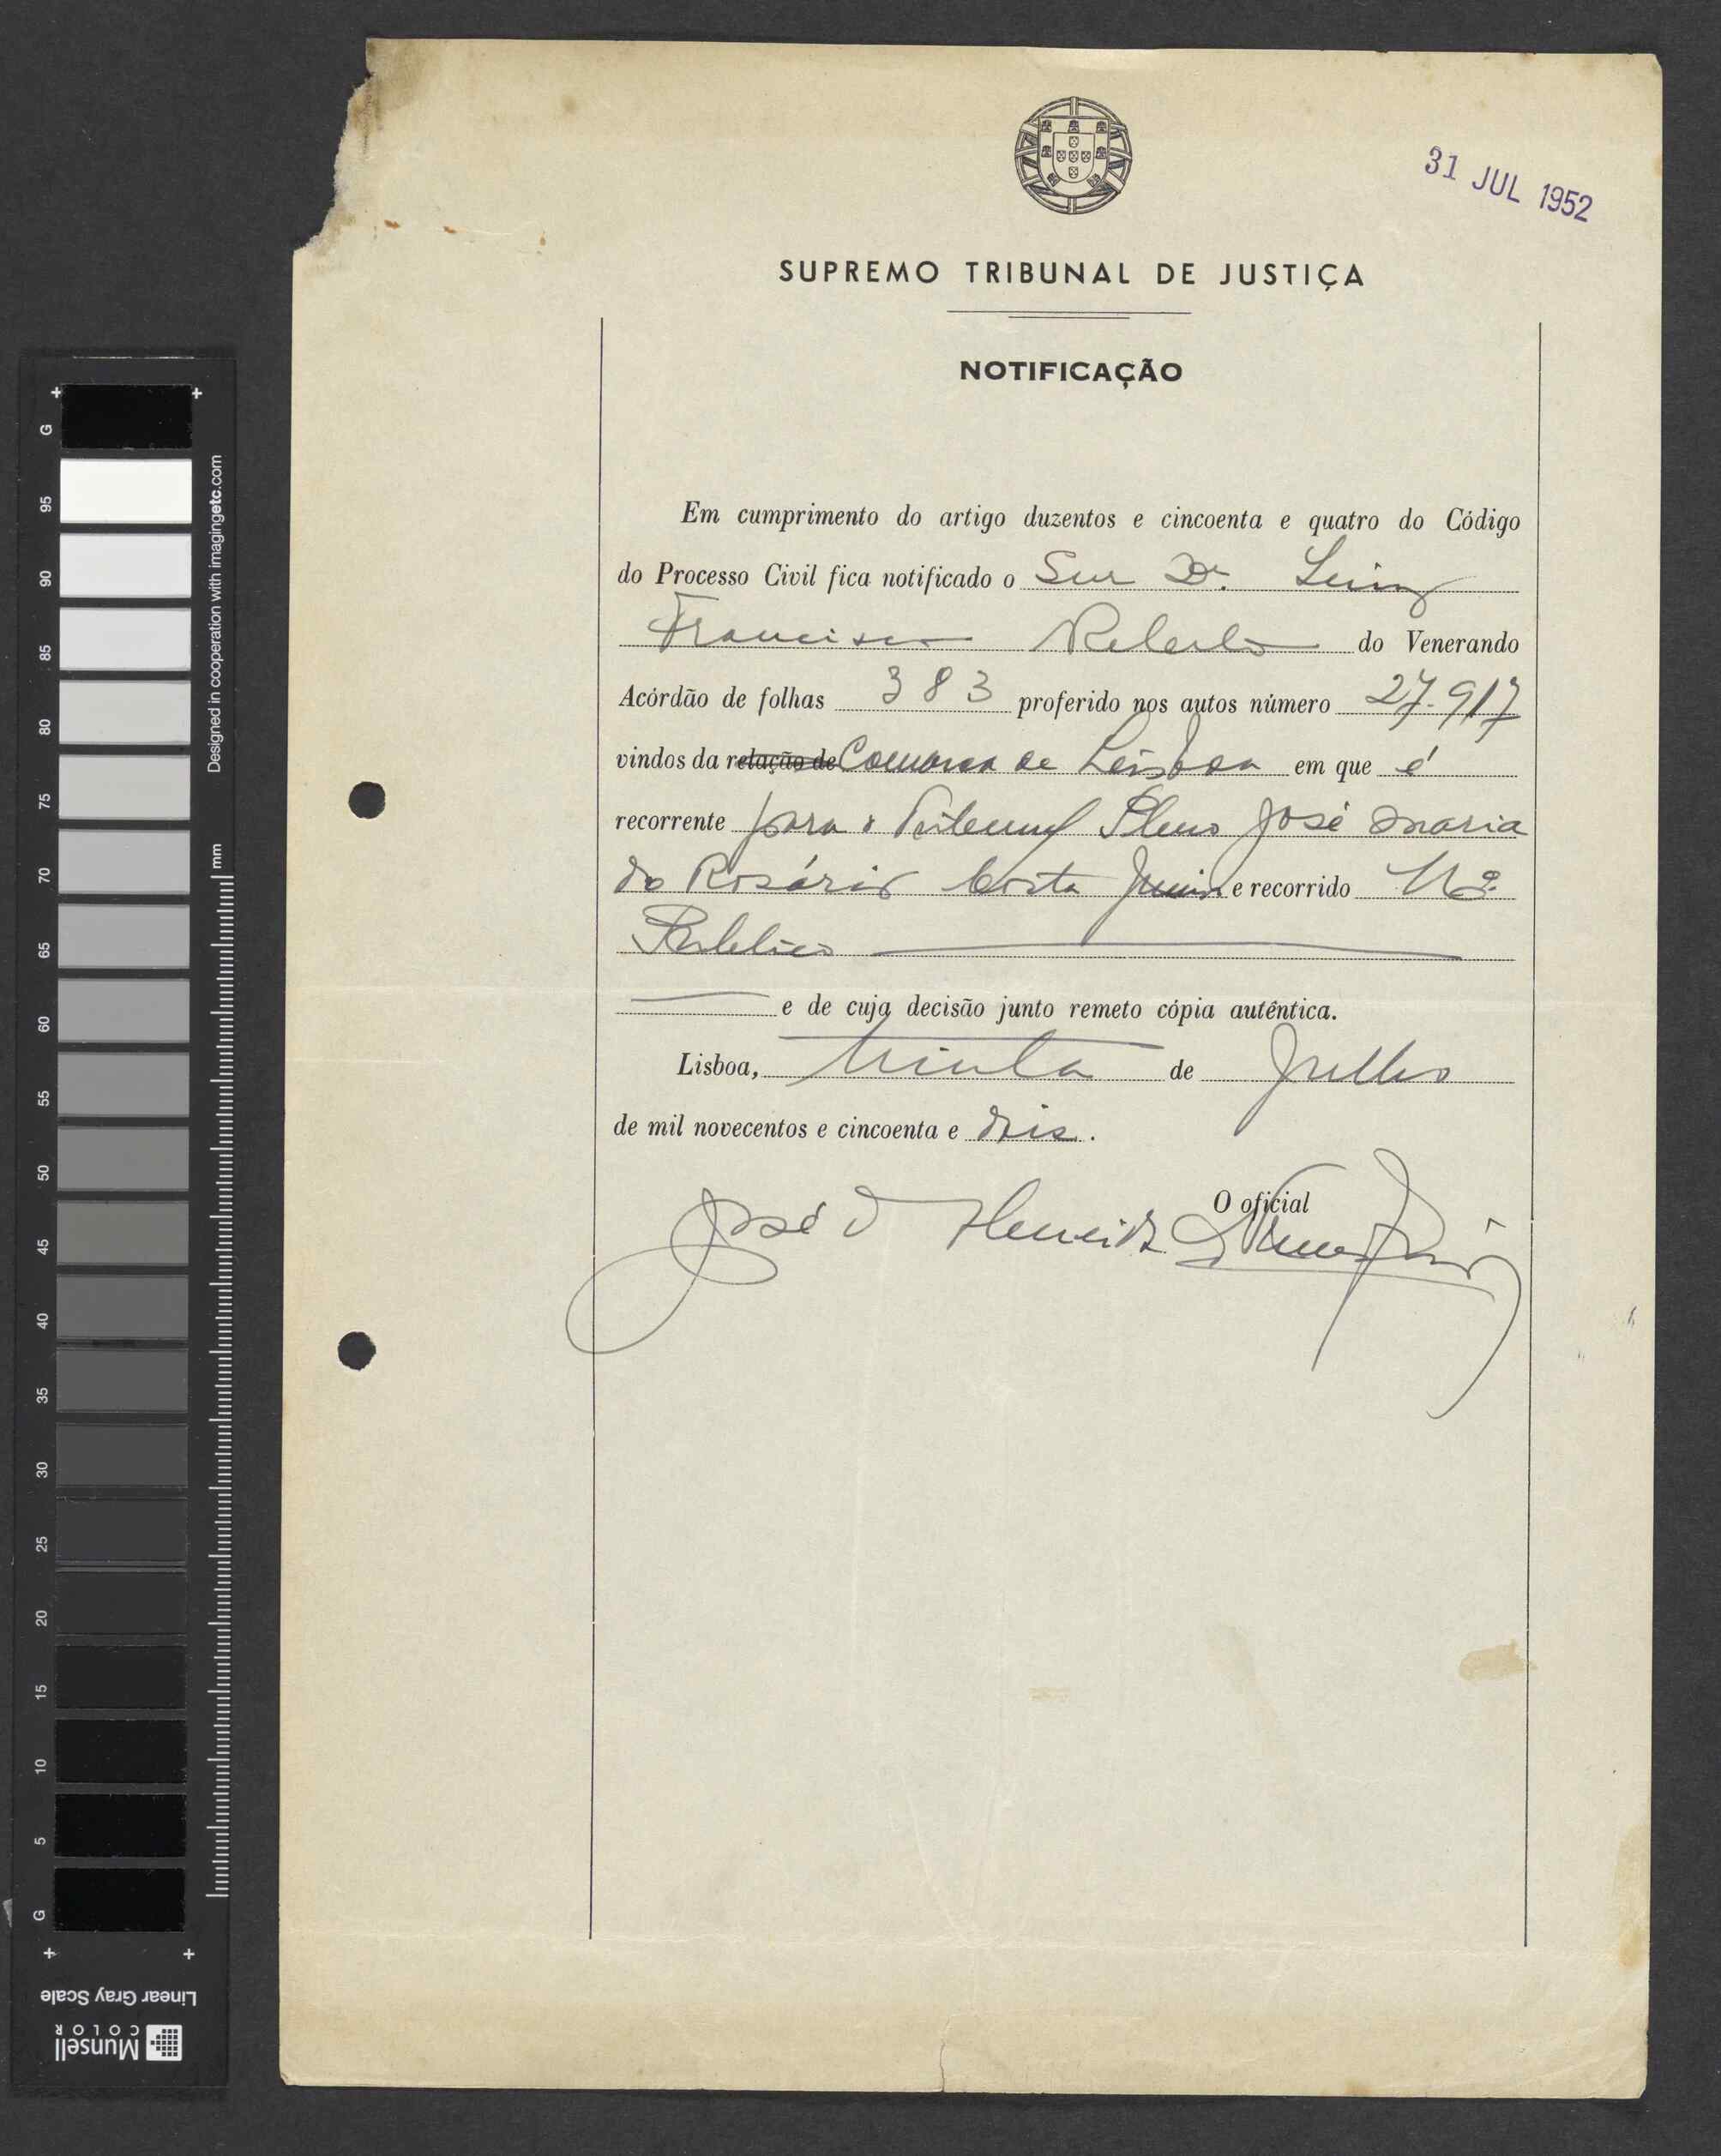 31 JUL 1952
SUPREMO TRIBUNAL DE JUSTIÇA
NOTIFICAÇÃO
Em cumprimento do artigo duzentos e cincoenta e quatro do Código
do Processo Civil fica notificado o Snr Dr. Luiz
Francisco Rebello do Venerando
Acórdão de folhas 383 proferido nos autos número 27.917
vindos da relação de Comarca de Lisboa em que é
recorrente para o Tribunal Pleno José Maria
do Rosário Costa Junior e recorrido Mº
Publico
e de cuja decisão junto remeto cópia autêntica.
Lisboa, trinta de Julho
de mil novecentos e cincoenta e dois.
O oficial
José d'Almeida
G 95 90 85 80 75 70 65 60 55 50 45 40 35 30 25 20 15 10 5 G
Designed in cooperation with imagingetc.com
mm
Linear Gray Scale
Munsell
COLOR